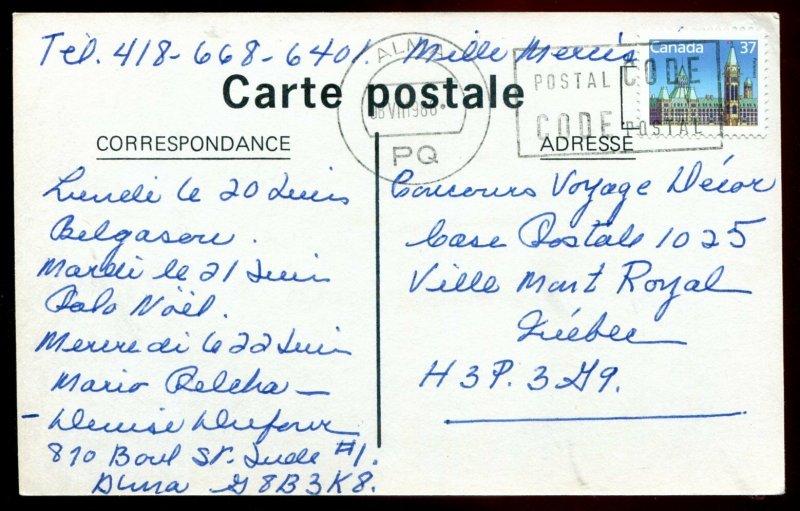 Tél. 418-668-6401. Mille Mercis
ALMA
08 VIII 1988
PQ
POSTAL CODE
CODE POSTAL
Canada 37
Carte postale
CORRESPONDANCE
Lundi le 20 Juin
Belgasou.
Mardi le 21 Juin
Palo Noël.
Mercredi le 22 Juin
Mario Pelcha —
— Denise Dufour
870 Boul St. Jude #1.
Alma G8B3K8.
ADRESSE
Concours Voyage Décor
Case Postale 1025
Ville Mont Royal
Québec
H3P. 3G9.